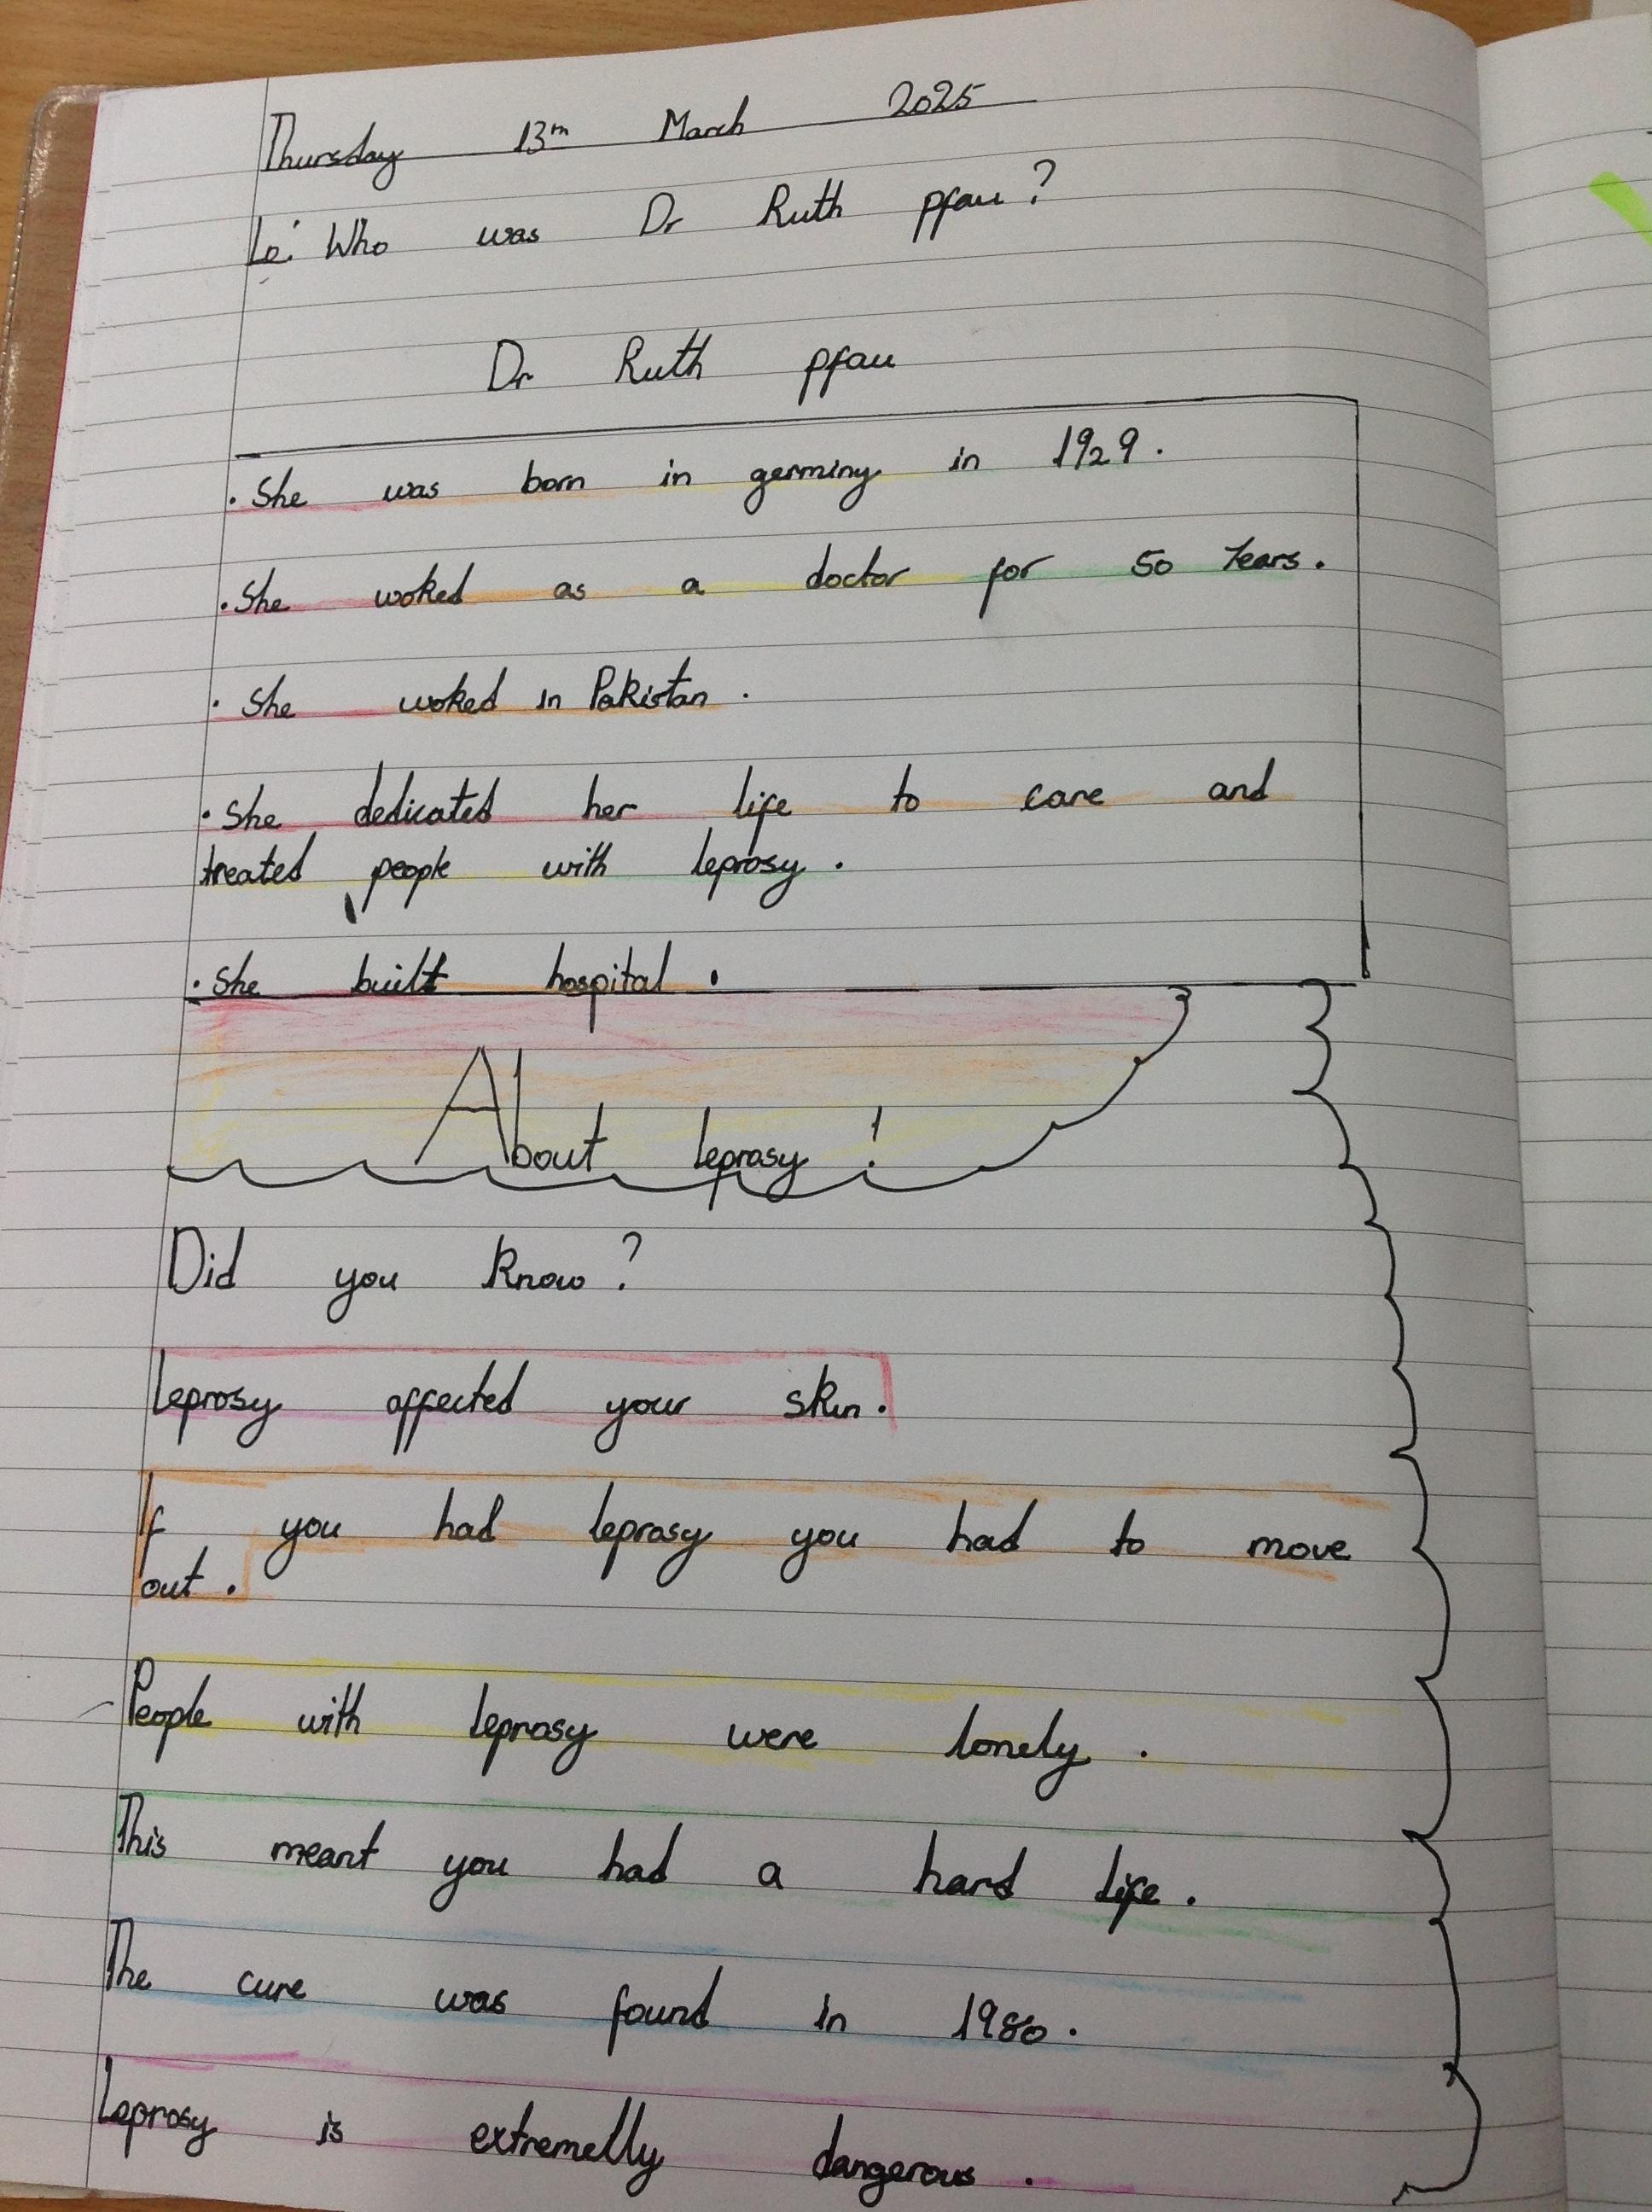 Thursday 13th March 2025
Lo: Who was Dr Ruth pfau?
Dr Ruth pfau
. She was born in germiny in 1929.
. She woked as a doctor for 50 Years.
. She woked in Pakistan.
. She dedicated her life to care and
treated people with leprosy.
. She built hospital.
About leprosy!
Did you know?
Leprosy affected your skin.
If you had leprosy you had to move
out.
People with leprosy were lonely.
This meant you had a hard life.
The cure was found in 1980.
Leprosy is extremelly dangerous.